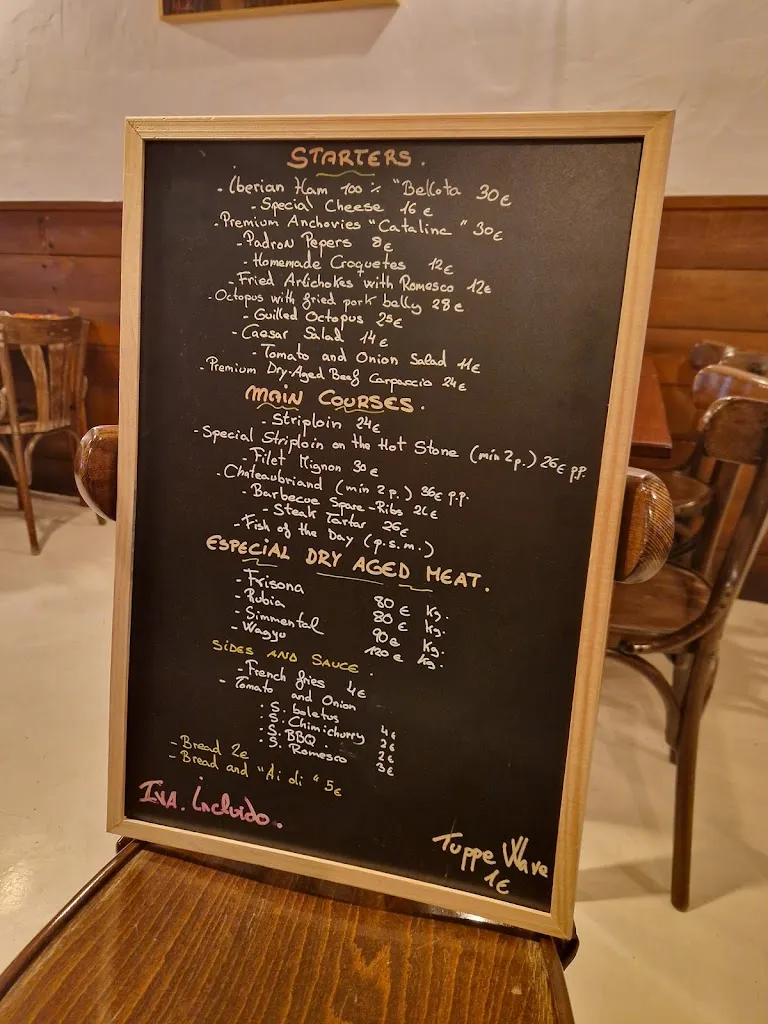 STARTERS.
- Iberian Ham 100 % "Bellota 30€
- Special Cheese 16 €
- Premium Anchovies "Catalina" 30€
- Padron Pepers 8€
- Homemade Croquetes 12€
- Fried Artichokes with Romesco 12€
- Octopus with fried pork belly 28€
- Guilled Octopus 25€
- Caesar Salad 14€
- Tomato and Onion Salad 11€
- Premium Dry-Aged Beef Carpaccio 24€
MAIN COURSES.
- Striploin 24€
- Special Striploin on the Hot Stone (min 2p.) 26€ p.p.
- Filet Mignon 30€
- Chateaubriand (min 2p.) 36€ p.p.
- Barbecue Spare-Ribs 21€
- Steak Tartar 26€
- Fish of the Day (p.s.m.)
ESPECIAL DRY AGED MEAT.
- Frisona 80 € Kg.
- Rubia 80 € Kg.
- Simmental 90€ Kg.
- Wagyu 120€ Kg.
SIDES AND SAUCE.
- French fries 4€
- Tomato and Onion
. S. boletus 4€
. S. Chimichurry 2€
. S. BBQ 2€
. S. Romesco 3€
- Bread 2€
- Bread and "Ai oli" 5€
IVA. Incluido.
Tuppe Wave
1€